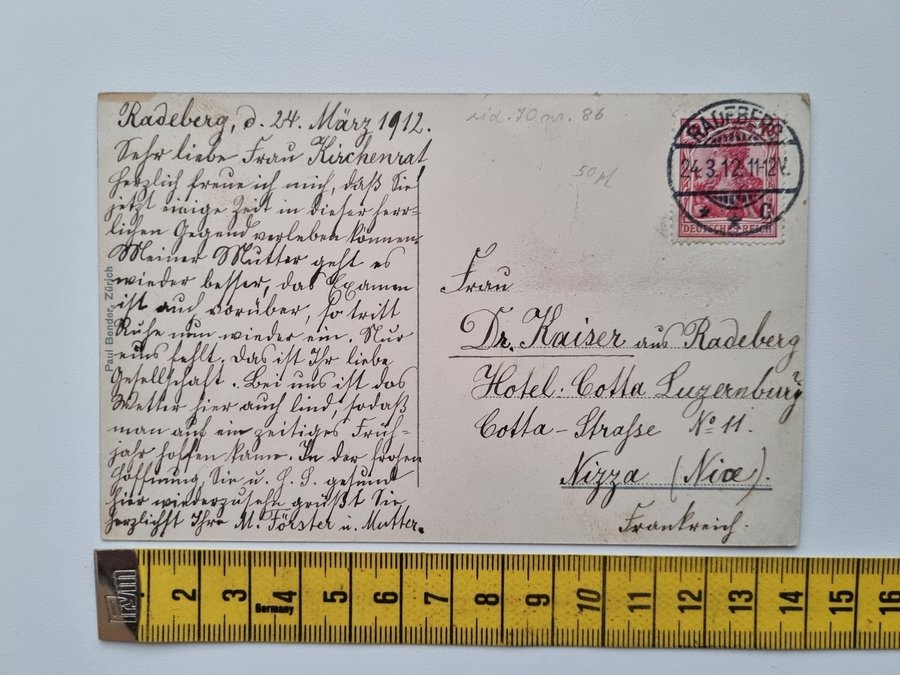 Radeberg, d. 24. März 1912.
Sehr liebe Frau Kirchenrat
Herzlich freue ich mich, daß Sie
jetzt einige Zeit in dieser herr=
lichen Gegend verleben können.
Meiner Mutter geht es
wieder besser, das Examen
ist auch vorüber, so tritt
Ruhe nun wieder ein. Nur
eins fehlt. Das ist Ihr liebe
Gesellschaft. Bei uns ist das
Wetter hier auch lind, sodaß
man auf ein zeitiges Früh=
jahr hoffen kann. In der frohen
Hoffnung, Sie u. gesund
hier wiederzusehn grüßt Sie
herzlichst Ihre M. Förster u. Mutter.
Paul Bender, Zürich
50 pf
RADEBERG
24.3.12.11-12V.
* * C
DEUTSCHES REICH
Frau
Dr. Kaiser aus Radeberg
Hotel Cotta Luzernburg
Cotta-Straße No 11.
Nizza (Nice).
Frankreich.
Germany
2 3 4 5 6 7 8 9 10 11 12 13 14 15 16